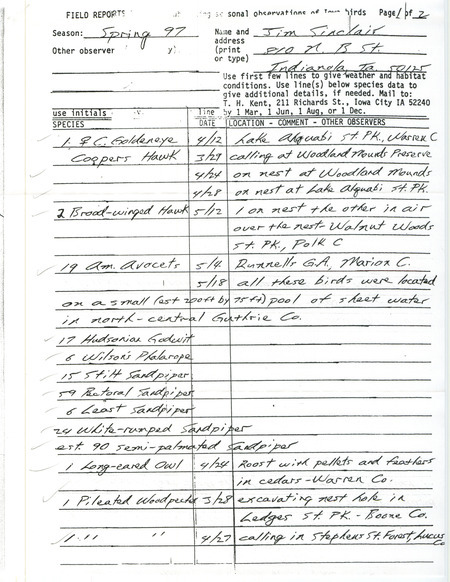 FIELD REPORTS sonal observations of birds Page 1 of 2
Season: Spring 97 Name and Jim Sinclair
address
Other observer (print 810 N. B St.
or type)
Indianola, Ia. 50125
Use first few lines to give weather and habitat
conditions. Use line(s) below species data to
give additional details, if needed. Mail to:
T. H. Kent, 211 Richards St., Iowa City IA 52240
use initials line by 1 Mar, 1 Jun, 1 Aug, or 1 Dec.
SPECIES DATE LOCATION - COMMENT - OTHER OBSERVERS
1 ♀ C. Goldeneye 4/12 Lake Ahquabi St. PK., Warren C
Coopers Hawk 3/29 calling at Woodland Mounds Preserve
4/24 on nest at Woodland Mounds
4/28 on nest at Lake Ahquabi St. PK.
2 Broad-winged Hawk 5/12 1 on nest the other in air
over the nest - Walnut Woods
St. PK., Polk C
19 Am. Avocets 5/4 Runnells G.A., Marion C.
5/18 all these birds were located
on a small (est 200ft by 75ft) pool of sheet water
in north-central Guthrie Co.
17 Hudsonian Godwit
6 Wilson's Phalarope
15 Stilt Sandpiper
59 Pectoral Sandpiper
6 Least Sandpiper
24 White-rumped Sandpiper
est. 90 semi-palmated Sandpiper
1 Long-eared Owl 4/24 Roost with pellets and feathers
in cedars - Warren Co.
1 Pileated Woodpecker 3/28 excavating nest hole in
Ledges St. PK. - Boone Co.
1 " " 4/27 calling in Stephens St. Forest, Lucas
Co